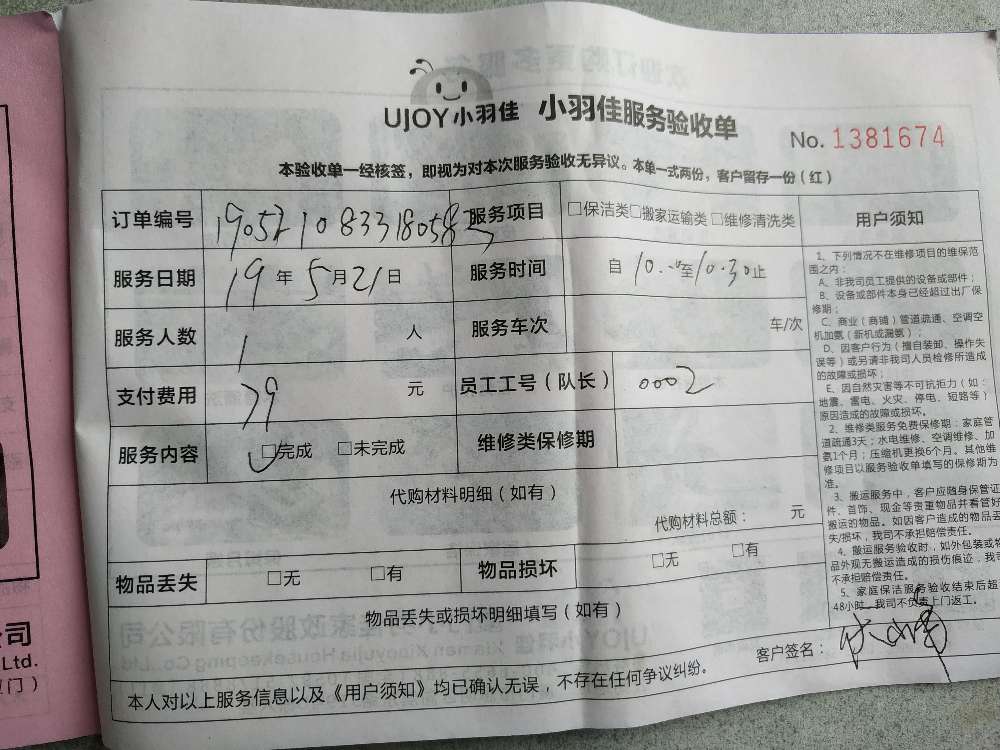 UJOY小羽佳 小羽佳服务验收单
No. 1381674
本验收单一经核签，即视为对本次服务验收无异议。本单一式两份，客户留存一份（红）
订单编号 服务项目 □保洁类□搬家运输类□维修清洗类
服务日期 19年5月21日 服务时间 自10.00至10.30止
服务人数 1人 服务车次 车/次
支付费用 79元 员工工号（队长） 0002
服务内容 □完成 □未完成 维修类保修期
代购材料明细（如有）
代购材料总额： 元
物品丢失 □无 □有 物品损坏 □无 □有
物品丢失或损坏明细填写（如有）
客户签名：
本人对以上服务信息以及《用户须知》均已确认无误，不存在任何争议纠纷。
用户须知
1、下列情况不在维修项目的维保范
围之内：
A、非我司员工提供的设备或部件；
B、设备或部件本身已经超过出厂保
修期；
C、商业（商铺）管道疏通、空调空
机加氨（新机或漏氨）；
D、因客户行为（擅自装卸、操作失
误等）或另请非我司人员检修所造成
的故障或损坏；
E、因自然灾害等不可抗拒力（如：
地震、雷电、火灾、停电、短路等）
原因造成的故障或损坏。
2、维修类服务免费保修期：家庭管
道疏通3天；水电维修、空调维修、加
氨1个月；压缩机更换6个月。其他维
修项目以服务验收单填写的保修期为
准。
3、搬运服务中，客户应随身保管证
件、首饰、现金等贵重物品并看管好
搬运的物品。如因客户造成的物品丢
失/损坏，我司不承担赔偿责任。
4、搬运服务验收时，如外包装或物
品外观无搬运造成的损伤痕迹，我司
不承担赔偿责任。
5、家庭保洁服务验收结束后超
48小时，我司不负责上门返工。
公司
Ltd.
门）